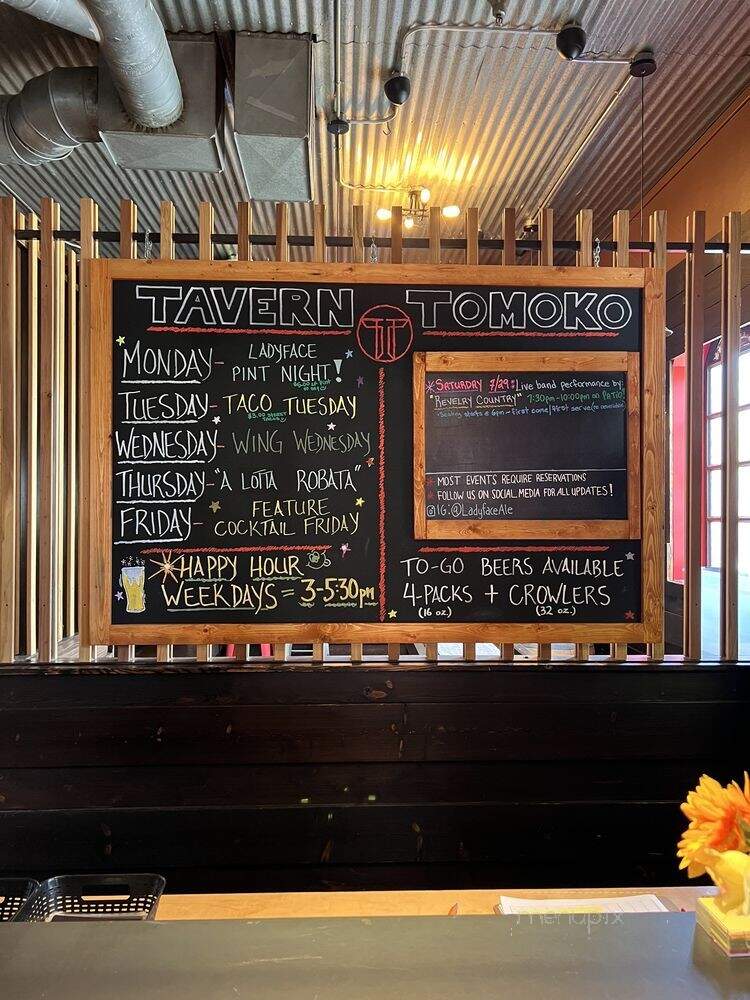 TAVERN TOMOKO
MONDAY- LADYFACE
PINT NIGHT!
TUESDAY- TACO TUESDAY
$3.00 STREET
TACOS
WEDNESDAY- WING WEDNESDAY
THURSDAY- "A LOTTA ROBATA"
FRIDAY- FEATURE
COCKTAIL FRIDAY
HAPPY HOUR
WEEKDAYS = 3-5:30pm
SATURDAY 7/29: Live band performance by:
"REVELRY COUNTRY" 7:30pm-10:00pm on PATIO!
Seating starts @ 6pm - first come/first serve (no reservations)
MOST EVENTS REQUIRE RESERVATIONS
FOLLOW US ON SOCIAL MEDIA FOR ALL UPDATES!
IG: @LadyfaceAle
TO-GO BEERS AVAILABLE
4-PACKS + CROWLERS
(16 oz.) (32 oz.)
menupix